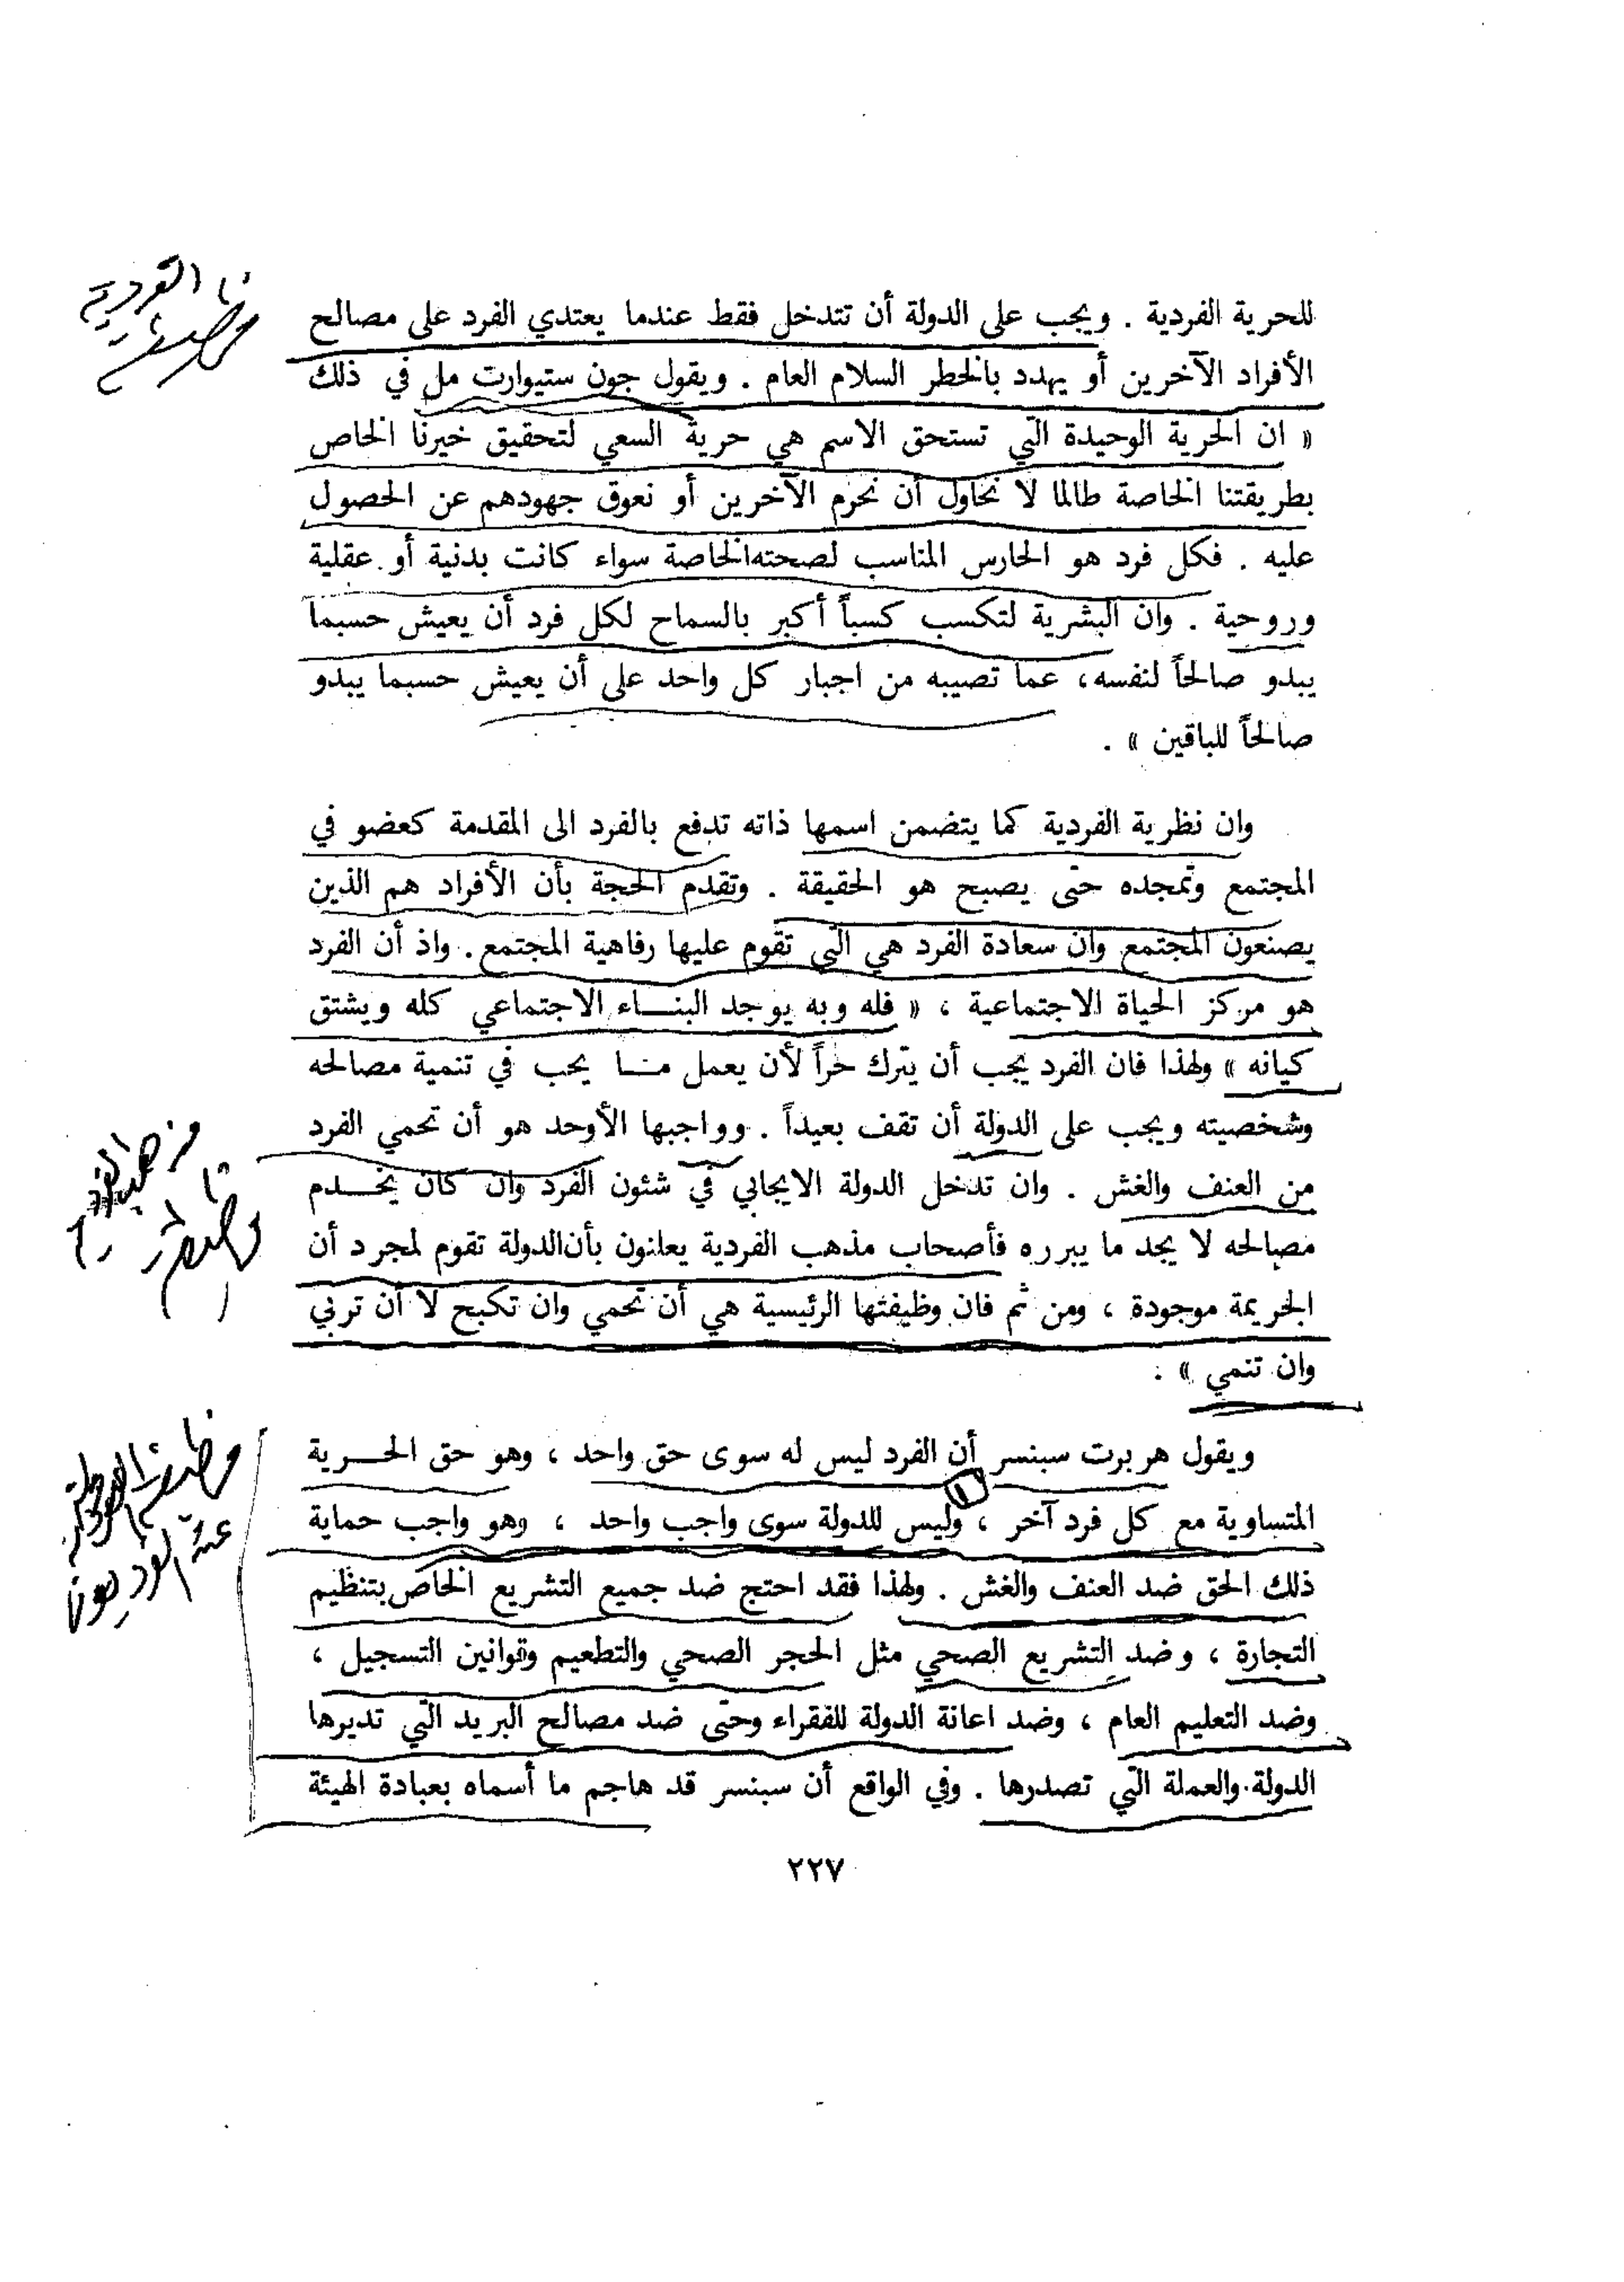 للحرية الفردية . ويجب على الدولة أن تتدخل فقط عندما يعتدي الفرد على مصالح
الأفراد الآخرين أو يهدد بالخطر السلام العام . ويقول جون ستيوارت مل في ذلك
« ان الحرية الوحيدة التي تستحق الاسم هي حرية السعي لتحقيق خيرنا الخاص
بطريقتنا الخاصة طالما لا نحاول أن نحرم الآخرين أو نعوق جهودهم عن الحصول
عليه . فكل فرد هو الحارس المناسب لصحته الخاصة سواء كانت بدنية أو عقلية
وروحية . وان البشرية لتكسب كسباً أكبر بالسماح لكل فرد أن يعيش حسبما
يبدو صالحاً لنفسه، عما تصيبه من اجبار كل واحد على أن يعيش حسبما يبدو
صالحاً للباقين » .
وان نظرية الفردية كما يتضمن اسمها ذاته تدفع بالفرد الى المقدمة كعضو في
المجتمع وتمجده حتى يصبح هو الحقيقة . وتقدم الحجة بأن الأفراد هم الذين
يصنعون المجتمع وان سعادة الفرد هي التي تقوم عليها رفاهية المجتمع . واذ أن الفرد
هو مركز الحياة الاجتماعية ، « فله وبه يوجد البنـــاء الاجتماعي كله ويشتق
كيانه » ولهذا فان الفرد يجب أن يترك حراً لأن يعمل مـــا يحب في تنمية مصالحه
وشخصيته ويجب على الدولة أن تقف بعيداً . وواجبها الأوحد هو أن تحمي الفرد
من العنف والغش . وان تدخل الدولة الايجابي في شئون الفرد وان كان يخـــدم
مصالحه لا يجد ما يبرره فأصحاب مذهب الفردية يعلنون بأن الدولة تقوم لمجرد أن
الجريمة موجودة ، ومن ثم فان وظيفتها الرئيسية هي أن تحمي وان تكبح لا أن تربي
وان تنمي » .
ويقول هربرت سبنسر أن الفرد ليس له سوى حق واحد ، وهو حق الحـــرية
المتساوية مع كل فرد آخر ، وليس للدولة سوى واجب واحد ، وهو واجب حماية
ذلك الحق ضد العنف والغش . ولهذا فقد احتج ضد جميع التشريع الخاص بتنظيم
التجارة ، وضد التشريع الصحي مثل الحجر الصحي والتطعيم وقوانين التسجيل ،
وضد التعليم العام ، وضد اعانة الدولة للفقراء وحتى ضد مصالح البريد التي تديرها
الدولة والعملة التي تصدرها . وفي الواقع أن سبنسر قد هاجم ما أسماه بعبادة الهيئة
٢٢٧